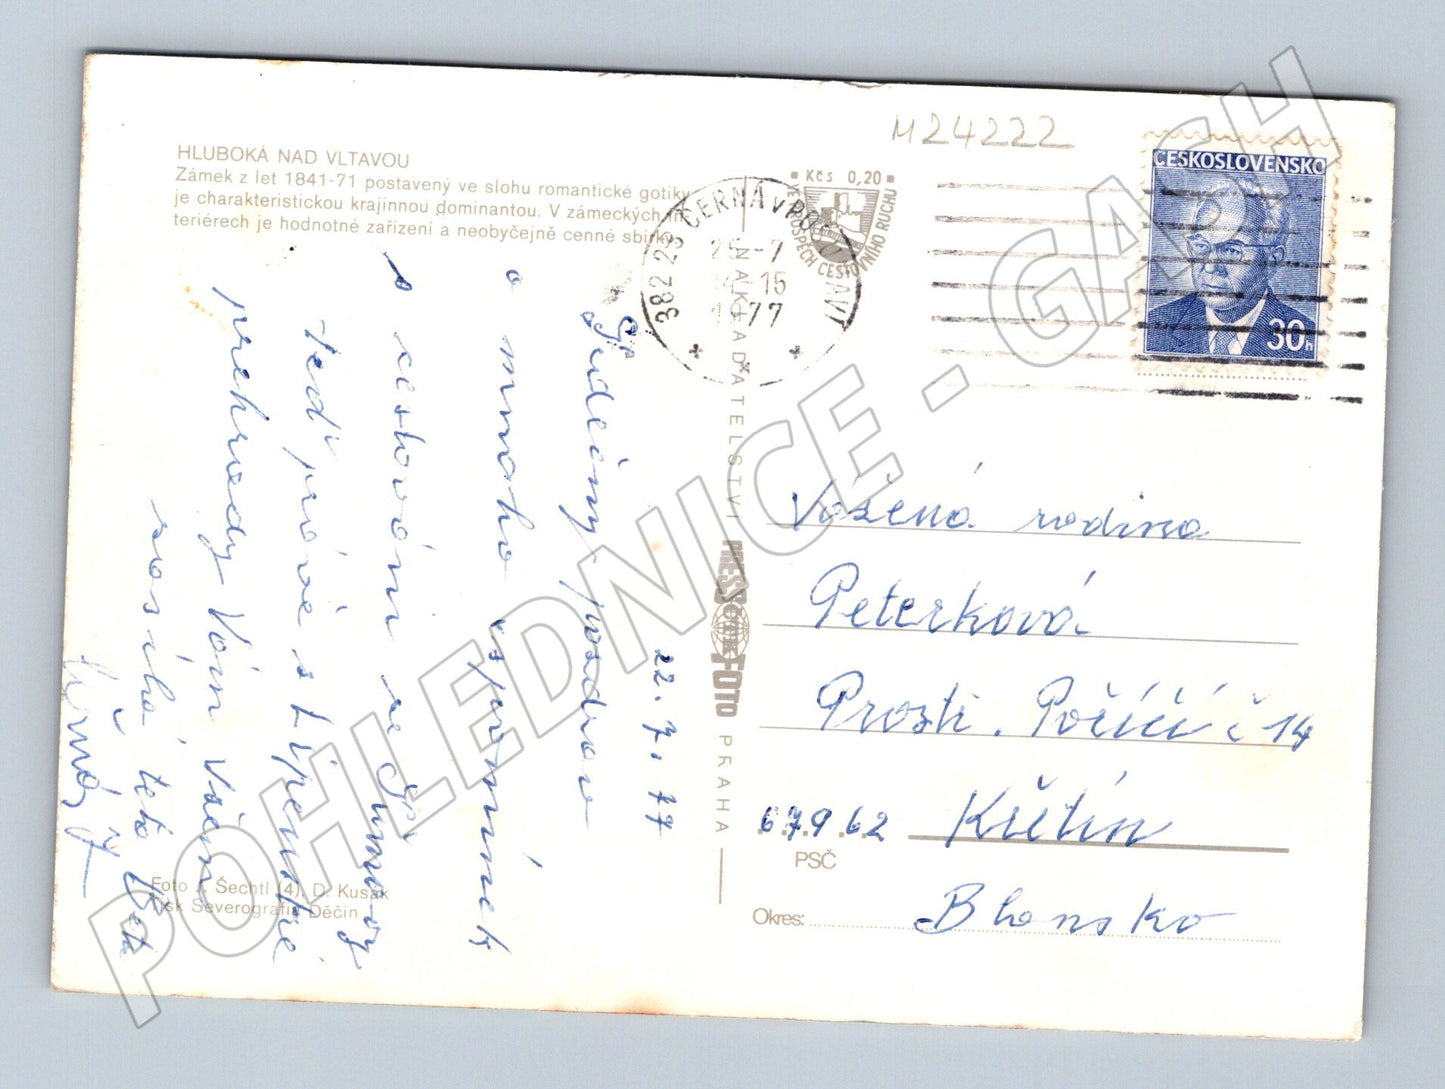 HLUBOKÁ NAD VLTAVOU
Zámek z let 1841-71 postavený ve slohu romantické gotiky
je charakteristickou krajinnou dominantou. V zámeckých in-
teriérech je hodnotné zařízení a neobyčejně cenné sbírky.
M24222
Kčs 0,20
VE PROSPĚCH CESTOVNÍHO RUCHU
382 23 ČERNÁ V PO
-7
15
77
ČESKOSLOVENSKO
30h
22.7.77
Srdečný pozdrav
a mnoho vzpomínek
s cestování na Šumavy
teď právě s Lipenské
přehrady Vám všem
zasílá teta Běta
NAKLADATELSTVÍ PRESSFOTO PRAHA
Vážená rodina
Peterková
Prostř. Poříčí č 14
67962 Křetín
PSČ
Okres: Blansko
Foto J. Šechtl (4), D. Kusák
Tisk Severografia Děčín
POHLEDNICE - GASH